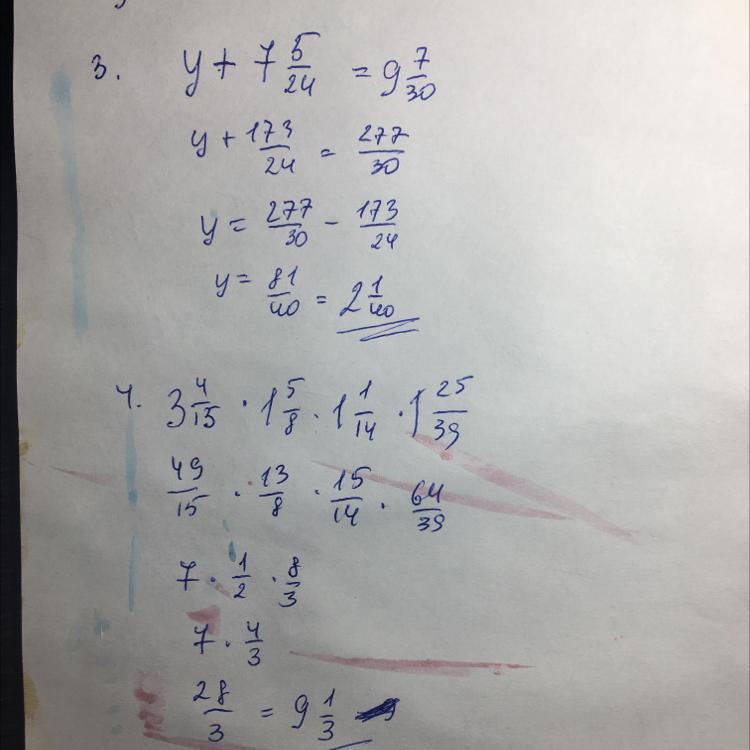 3. y + 7 5/24 = 9 7/30
y + 173/24 = 277/30
y = 277/30 - 173/24
y = 81/40 = 2 1/40
4. 3 4/15 · 1 5/8 · 1 1/14 · 1 25/39
49/15 · 13/8 · 15/14 · 64/39
7 · 1/2 · 8/3
7 · 4/3
28/3 = 9 1/3